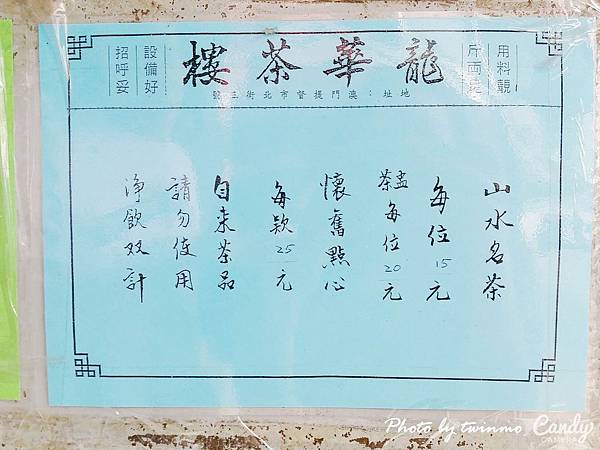 用料靚
斤両足
龍華茶樓
地址：澳門提督市北街三號
設備好
招呼妥
山水名茶
每位15元
盅茶每位20元
懷舊點心
每款25元
自来茶品
請勿使用
淨飲双計
Photo by twinmo
Candy
CAMERA